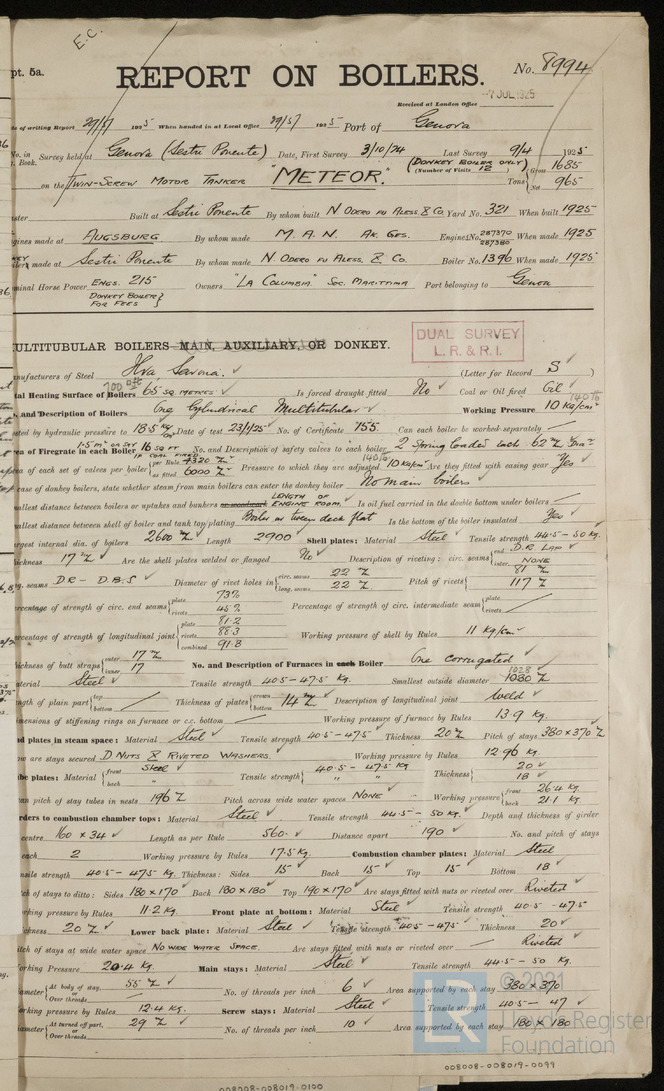 E.C.
pt. 5a.
REPORT ON BOILERS.
No. 8994
7 JUL 1925
Received at London Office
te of writing Report 29/5/ 1925 When handed in at Local Office 29/5/ 1925 Port of Genova
No. in Survey held at Genova (Sestri Ponente) Date, First Survey 3/10/24 Last Survey 9/4 1925
Book.
(DONKEY BOILER ONLY)
(Number of Visits 12) Gross 1685
on the TWIN-SCREW MOTOR TANKER "METEOR." Tons Net 965
ster Built at Sestri Ponente By whom built N. ODERO FU ALESS. & CO. Yard No. 321 When built 1925
gines made at AUGSBURG By whom made M. A. N. AK. GES. Engine No. 287370 287380 When made 1925
made at Sestri Ponente By whom made N. ODERO FU ALESS. & CO. Boiler No. 1396 When made 1925
minal Horse Power ENGS. 215 Owners "LA COLUMBIA" SOC. MARITTIMA Port belonging to Genoa
DONKEY BOILER
FOR FEES
DUAL SURVEY
L. R. & R. I.
ULTITUBULAR BOILERS MAIN, AUXILIARY, OR DONKEY.
nufacturers of Steel Ilva Savona. (Letter for Record S)
700 sq ft
tal Heating Surface of Boilers 65 SQ METRES Is forced draught fitted No Coal or Oil fired Oil
. and Description of Boilers One Cylindrical Multitubular Working Pressure 10 Kg/cm²
ted by hydraulic pressure to 18.5 Kg Date of test 23/1/25 No. of Certificate 755 Can each boiler be worked separately
ea of Firegrate in each Boiler 16 SQ FT No. and Description of safety valves to each boiler 2 Spring loaded each 62
ea of each set of valves per boiler per Rule 4320 as fitted 6000 Pressure to which they are adjusted 10 Kg/cm² Are they fitted with easing gear Yes
case of donkey boilers, state whether steam from main boilers can enter the donkey boiler No main boilers
LENGTH OF
allest distance between boilers or uptakes and bunkers ENGINE ROOM. Is oil fuel carried in the double bottom under boilers
allest distance between shell of boiler and tank top plating Boiler on tween deck flat Is the bottom of the boiler insulated Yes
rgest internal dia. of boilers 2600 Length 2900 Shell plates: Material Steel Tensile strength 44.5 - 50 Kg.
hickness 17 Are the shell plates welded or flanged No Description of riveting: circ. seams end D.R. LAP inter. NONE
ng. seams DR - D.B.S Diameter of rivet holes in circ. seams 22 long. seams 22 Pitch of rivets 81 117
rcentage of strength of circ. end seams plate 73% rivets 45% Percentage of strength of circ. intermediate seam plate rivets
rcentage of strength of longitudinal joint plate 81.2 rivets 88.3 combined 91.8 Working pressure of shell by Rules 11 Kg/cm²
ickness of butt straps outer 17 inner 17 No. and Description of Furnaces in each Boiler One corrugated
aterial Steel Tensile strength 40.5 - 47.5 Kg. Smallest outside diameter 1028
ngth of plain part top bottom Thickness of plates crown bottom 14 Description of longitudinal joint Weld
imensions of stiffening rings on furnace or c.c. bottom Working pressure of furnace by Rules 13.9 Kg.
nd plates in steam space: Material Steel Tensile strength 40.5 - 47.5 Thickness 20 Pitch of stays 380 x 370
ow are stays secured D. NUTS & RIVETED WASHERS. Working pressure by Rules 12.96 Kg.
be plates: Material front Steel back " Tensile strength 40.5 - 47.5 Kg " " Thickness 20 18
an pitch of stay tubes in nests 196 Pitch across wide water spaces NONE Working pressure front 26.4 Kg back 21.1 Kg.
rders to combustion chamber tops: Material Steel Tensile strength 44.5 - 50 Kg. Depth and thickness of girder
centre 160 x 34 Length as per Rule 560. Distance apart 190 No. and pitch of stays
each 2 Working pressure by Rules 17.5 Kg. Combustion chamber plates: Material Steel
nsile strength 40.5 - 47.5 Kg. Thickness: Sides 15 Back 15 Top 15 Bottom 18
tch of stays to ditto: Sides 180 x 170 Back 180 x 180 Top 190 x 170 Are stays fitted with nuts or riveted over Riveted
rking pressure by Rules 11.2 Kg. Front plate at bottom: Material Steel Tensile strength 40.5 - 47.5
ickness 20 Lower back plate: Material Steel Tensile strength 40.5 - 47.5 Thickness 20
itch of stays at wide water space NO WIDE WATER SPACE. Are stays fitted with nuts or riveted over Riveted
orking Pressure 20.4 Kg. Main stays: Material Steel Tensile strength 44.5 - 50 Kg.
ameter At body of stay, or Over threads 55 No. of threads per inch 6 Area supported by each stay 380 x 370
rking pressure by Rules 12.4 Kg. Screw stays: Material Steel Tensile strength 40.5 - 47
ameter At turned off part, or Over threads 29 No. of threads per inch 10 Area supported by each stay 180 x 180
© 2021
Lloyd's Register
Foundation
008008-008019-0099
008008-008019-0100